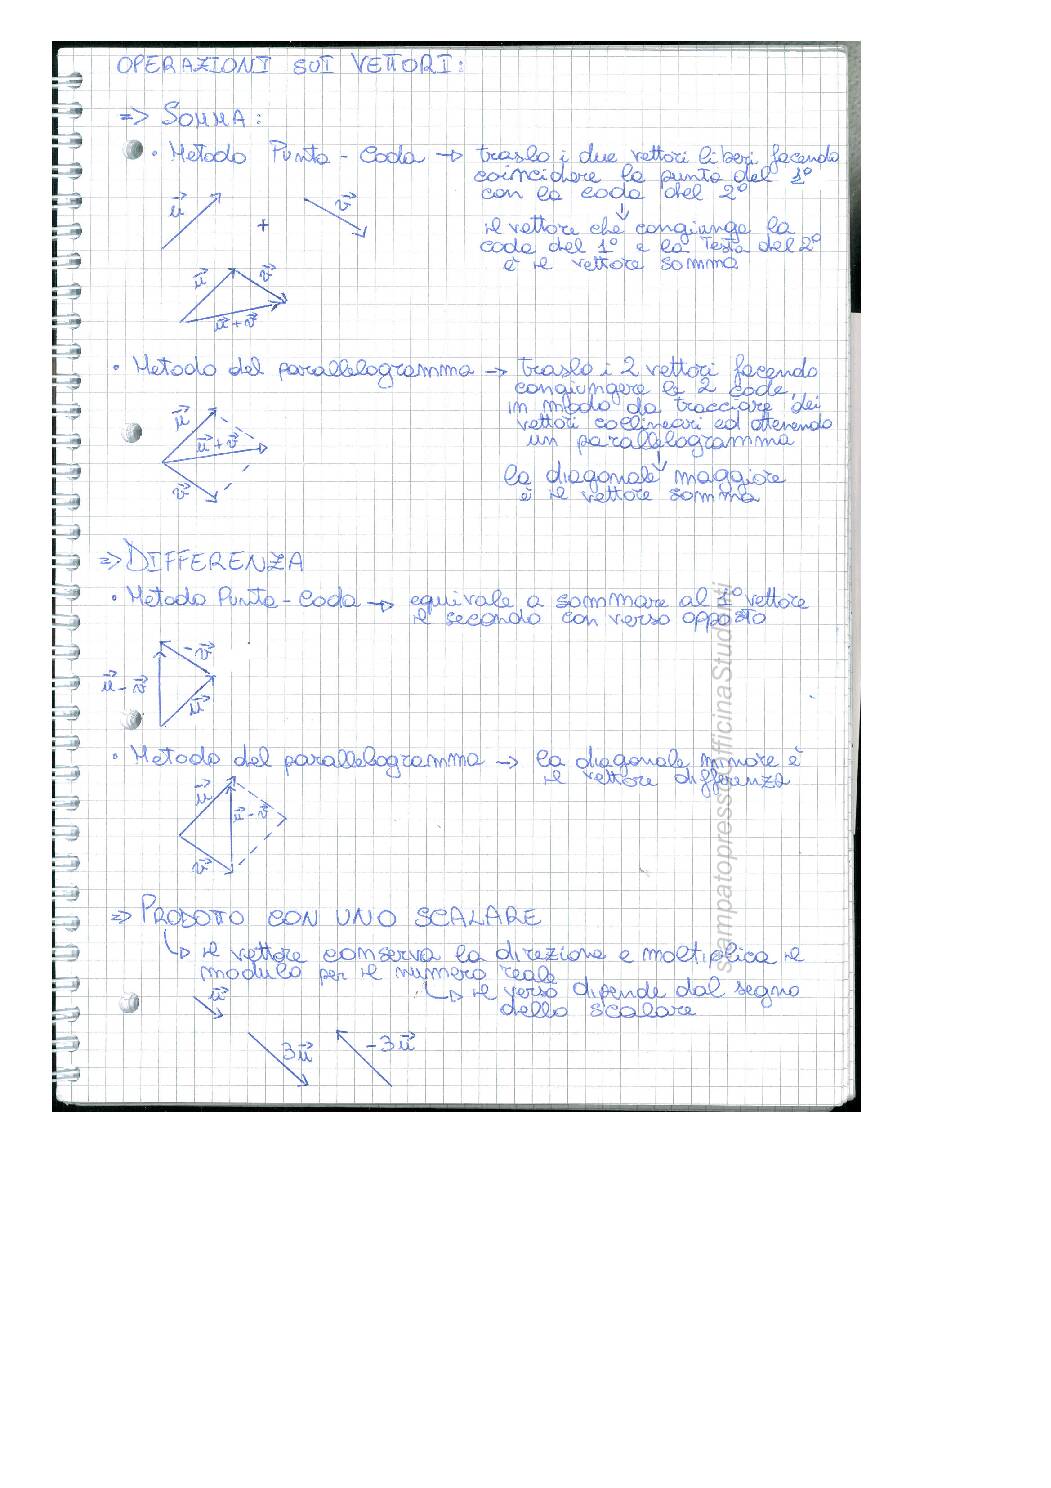 OPERAZIONI SUI VETTORI:
=> SOMMA:
• Metodo Punta-Coda → traslo i due vettori liberi facendo
coincidere la punta del 1°
con la coda del 2°
↓
il vettore che congiunge la
coda del 1° e la testa del 2°
è il vettore somma
u⃗ + v⃗
u⃗ v⃗
u⃗+v⃗
• Metodo del parallelogramma → traslo i 2 vettori facendo
congiungere le 2 code,
in modo da tracciare dei
vettori collineari ed ottenendo
un parallelogramma
↓
la diagonale maggiore
è il vettore somma
u⃗
u⃗+v⃗
v⃗
=> DIFFERENZA
• Metodo Punta-Coda → equivale a sommare al 1° vettore
il secondo con verso opposto
-v⃗
u⃗-v⃗
u⃗
• Metodo del parallelogramma → la diagonale minore è
il vettore differenza
u⃗
u⃗-v⃗
v⃗
=> PRODOTTO CON UNO SCALARE
↳ il vettore conserva la direzione e moltiplica il
modulo per il numero reale
↳ il verso dipende dal segno
dello scalare
u⃗
3u⃗
-3u⃗
stampatopressoOfficinaStudenti